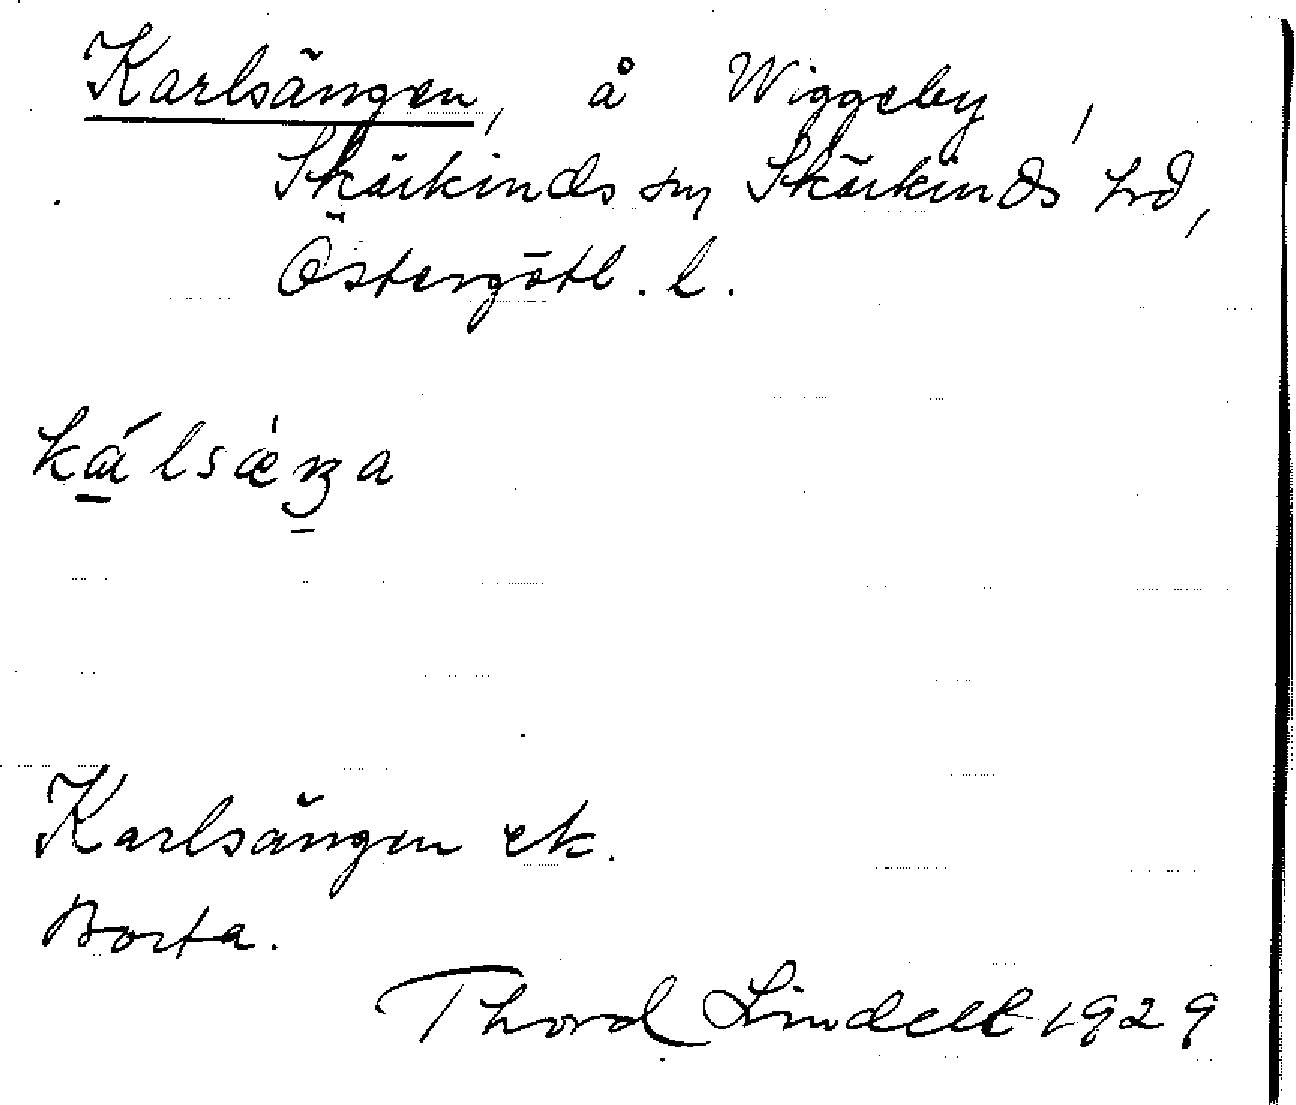 Karlsängen, å Wiggeby,
Skärkinds sn Skärkinds hd,
Östergötl. l.
kálsǽŋa
Karlsängen ek.
Borta.
Thord Lindell 1929